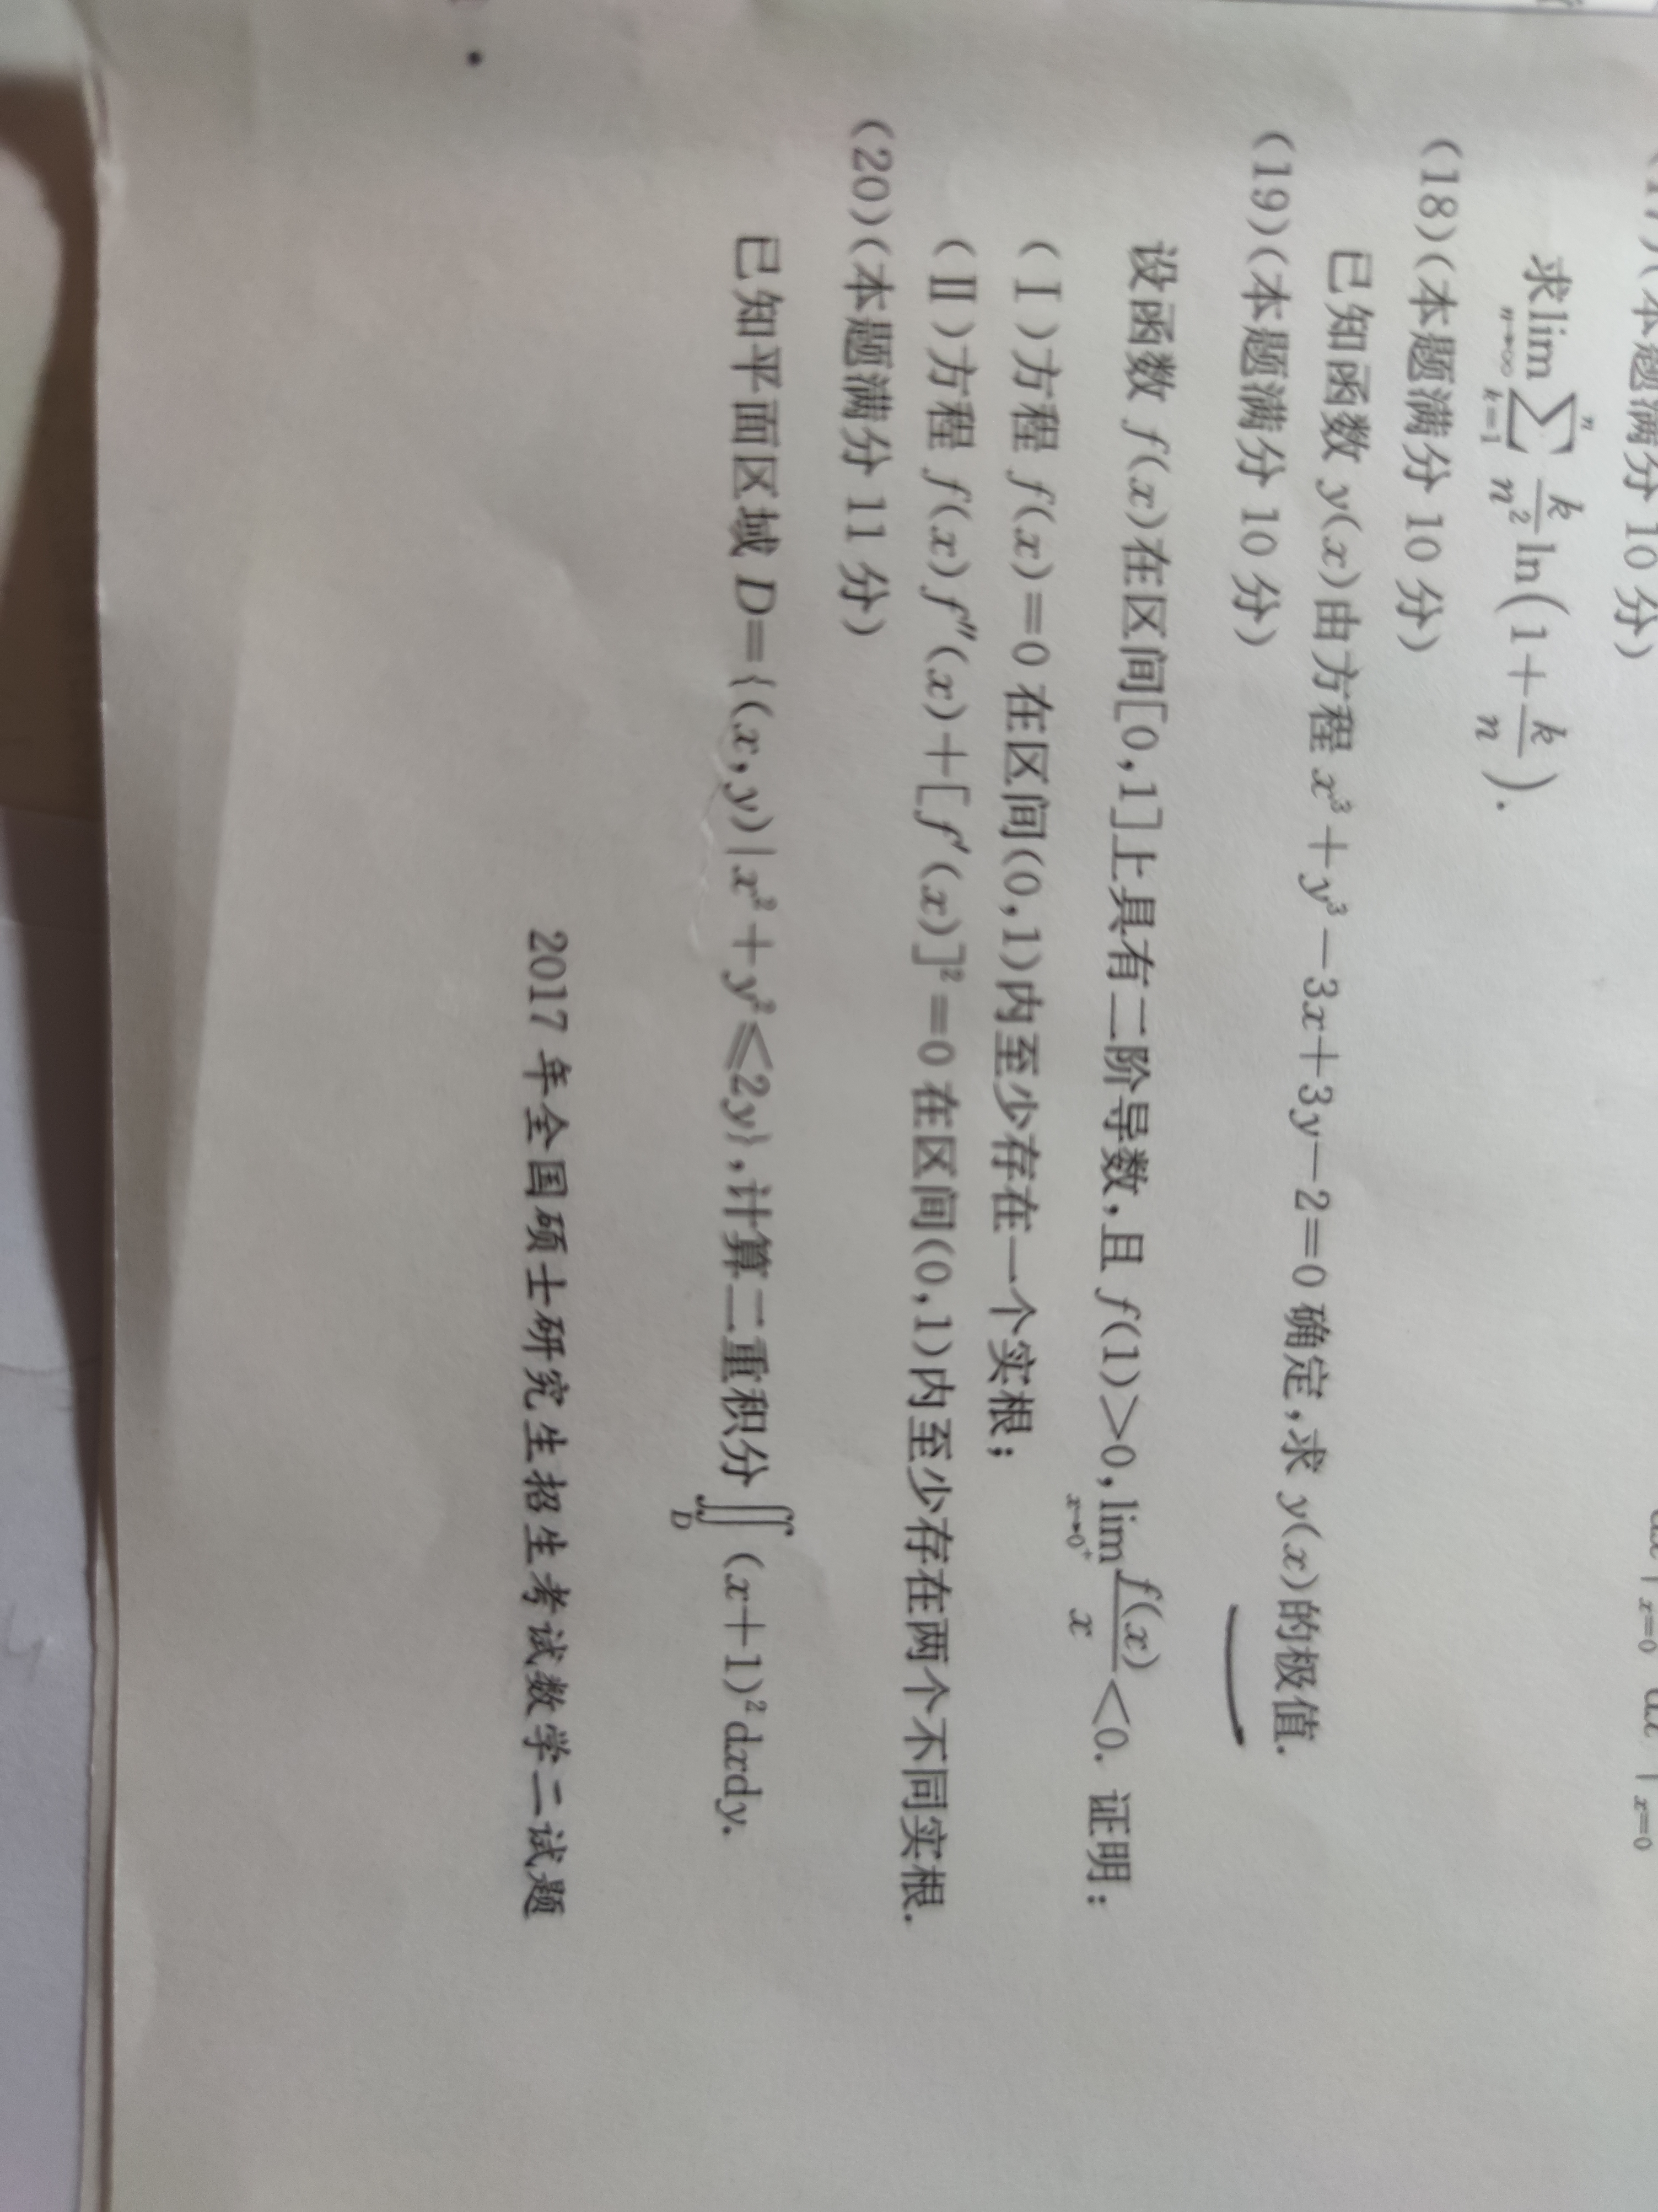 (本题满分 10 分)
求$\lim_{n\to\infty}\sum_{k=1}^{n}\frac{k}{n^2}\ln\left(1+\frac{k}{n}\right)$.
(18)(本题满分 10 分)
已知函数 y(x)由方程 x³+y³-3x+3y-2=0 确定,求 y(x)的极值.
(19)(本题满分 10 分)
设函数 f(x)在区间[0,1]上具有二阶导数,且 f(1)>0,$\lim_{x\to0^+}\frac{f(x)}{x}$<0. 证明:
(Ⅰ)方程 f(x)=0 在区间(0,1)内至少存在一个实根;
(Ⅱ)方程 f(x)f″(x)+[f′(x)]²=0 在区间(0,1)内至少存在两个不同实根.
(20)(本题满分 11 分)
已知平面区域 D={(x,y)|x²+y²≤2y},计算二重积分$\iint_D$(x+1)²dxdy.
2017 年全国硕士研究生招生考试数学二试题